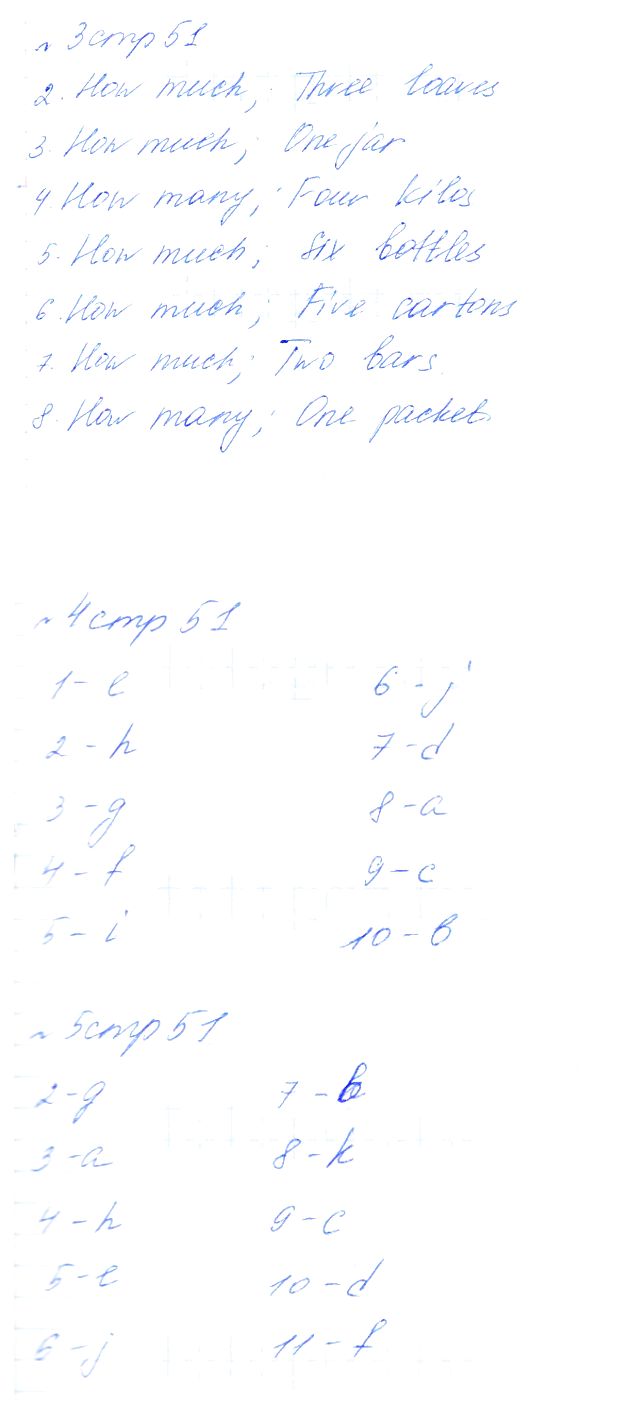 ~ 3 стр 51
2. How much; Three loaves
3. How much; One jar
4. How many; Four kilos
5. How much; Six bottles
6. How much; Five cartons
7. How much; Two bars
8. How many; One packet.
~ 4 стр 51
1 - e 6 - j
2 - h 7 - d
3 - g 8 - a
4 - f 9 - c
5 - i 10 - b
~ 5 стр 51
2 - g 7 - b
3 - a 8 - k
4 - h 9 - c
5 - e 10 - d
6 - j 11 - f